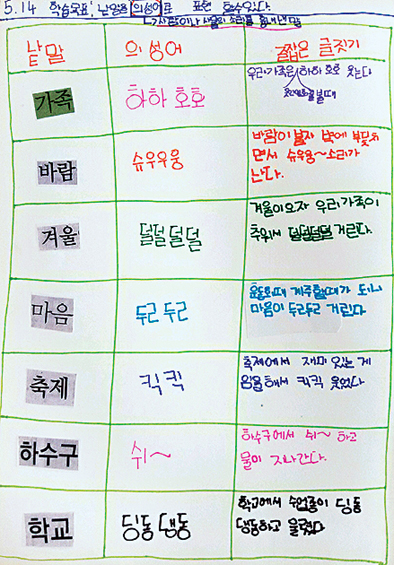 5.14 학습목표, 낱말을 의성어로 표현 할 수 있다.
↳사람이나 사물의 소리를 흉내낸 말
낱말 의성어 짧은 글짓기
가족 하하 호호 우리가족은 하하 호호 웃는다
볼때
바람 슈우우웅 바람이 불자 벽에 부딪치
면서 슈우웅~소리가
난다.
겨울 덜덜덜덜 겨울이오자 우리가족이
추워서 덜덜덜덜 거린다.
마음 두근 두근 운동회때 계주할때가 되니
마음이 두근두근 거린다
축제 킥킥 축제에서 재미 있는 게
임을해서 킥킥 웃었다
하수구 쉬~ 하수구에서 쉬~ 하고
물이 지나간다.
학교 딩동 댕동 학교에서 수업종이 딩동
댕동하고 울렸다